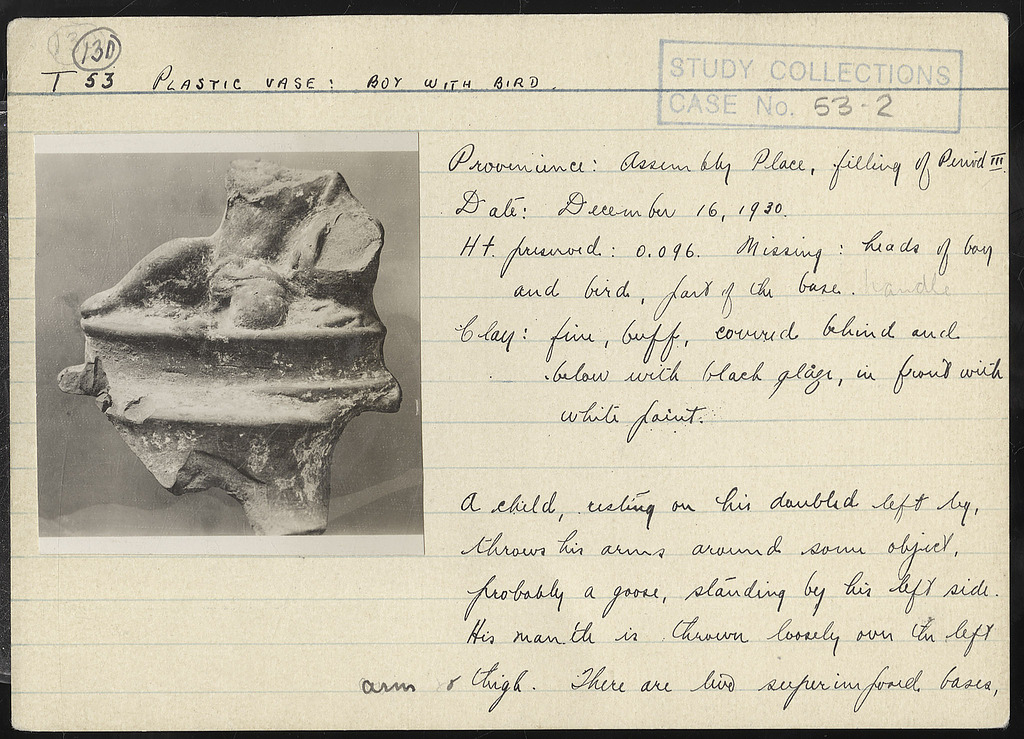 130
T 53 PLASTIC VASE: BOY WITH BIRD.
STUDY COLLECTIONS
CASE No. 53-2
Provenience: Assembly Place, filling of Period III.
Date: December 16, 1930.
Ht. preserved: 0.096. Missing: heads of boy
and bird, part of the base. handle
Clay: fine, buff, covered behind and
below with black glaze, in front with
white paint.
A child, resting on his doubled left leg,
throws his arms around some object,
probably a goose, standing by his left side.
His mantle is thrown loosely over the left
arm & thigh. There are two superimposed bases,